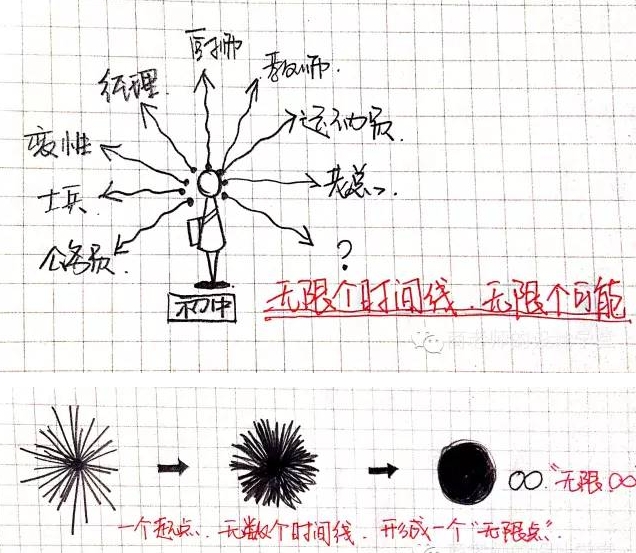 厨师
教师.
经理.
运动员.
变性
老总.
士兵.
公务员.
?
初中
无限个时间线.无限个可能
∞."无限∞
一个起点.无数个时间线.形成一个"无限点".